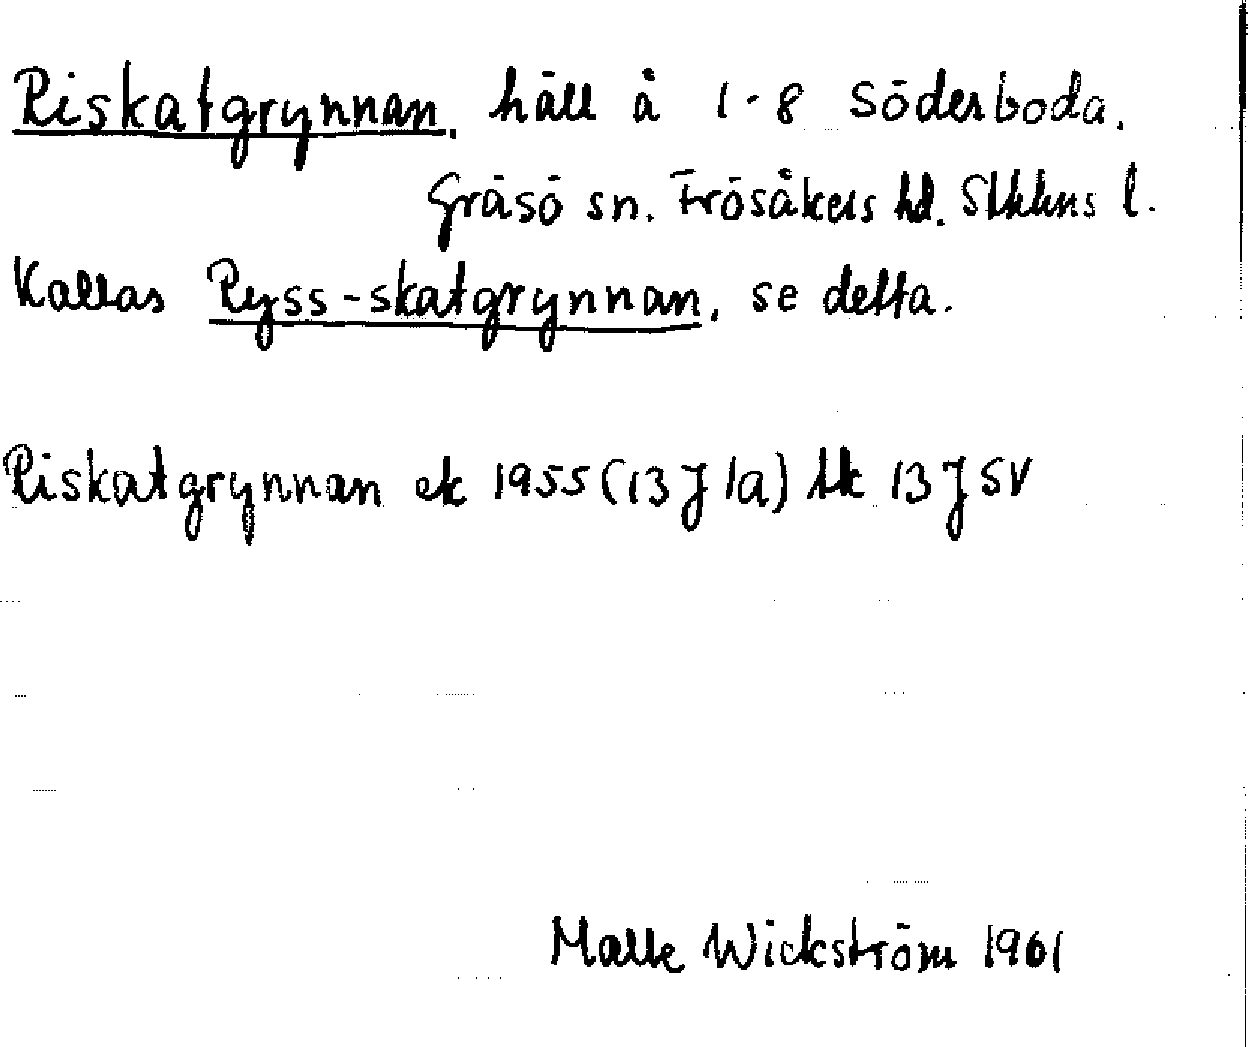 Riskatgrynnan, häll å 1-8 Söderboda.
Gräsö sn. Frösåkers hd. Sthlms l.
Kallas Ryss-skatgrynnan, se detta.
Riskatgrynnan ek 1955 (13 J 1a) tk 13 J SV
Malle Wickström 1961